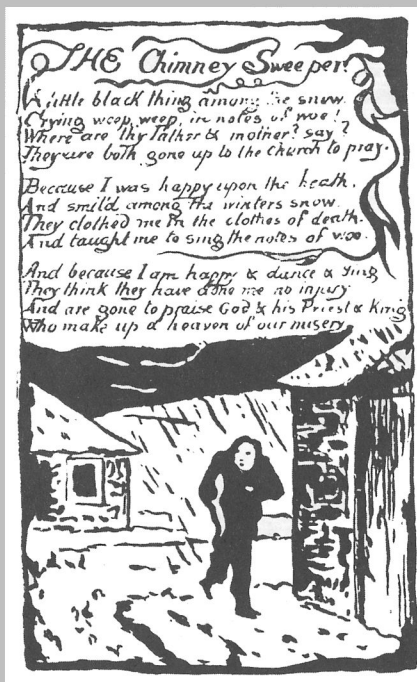 THE Chimney Sweeper
A little black thing among the snow.
Crying weep, weep, in notes of woe!
Where are thy father & mother? say?
They are both gone up to the church to pray.
Because I was happy upon the heath.
And smil'd among the winters snow.
They clothed me in the clothes of death.
And taught me to sing the notes of woe.
And because I am happy & dance & sing
They think they have done me no injury
And are gone to praise God & his Priest & King
Who make up a heaven of our misery